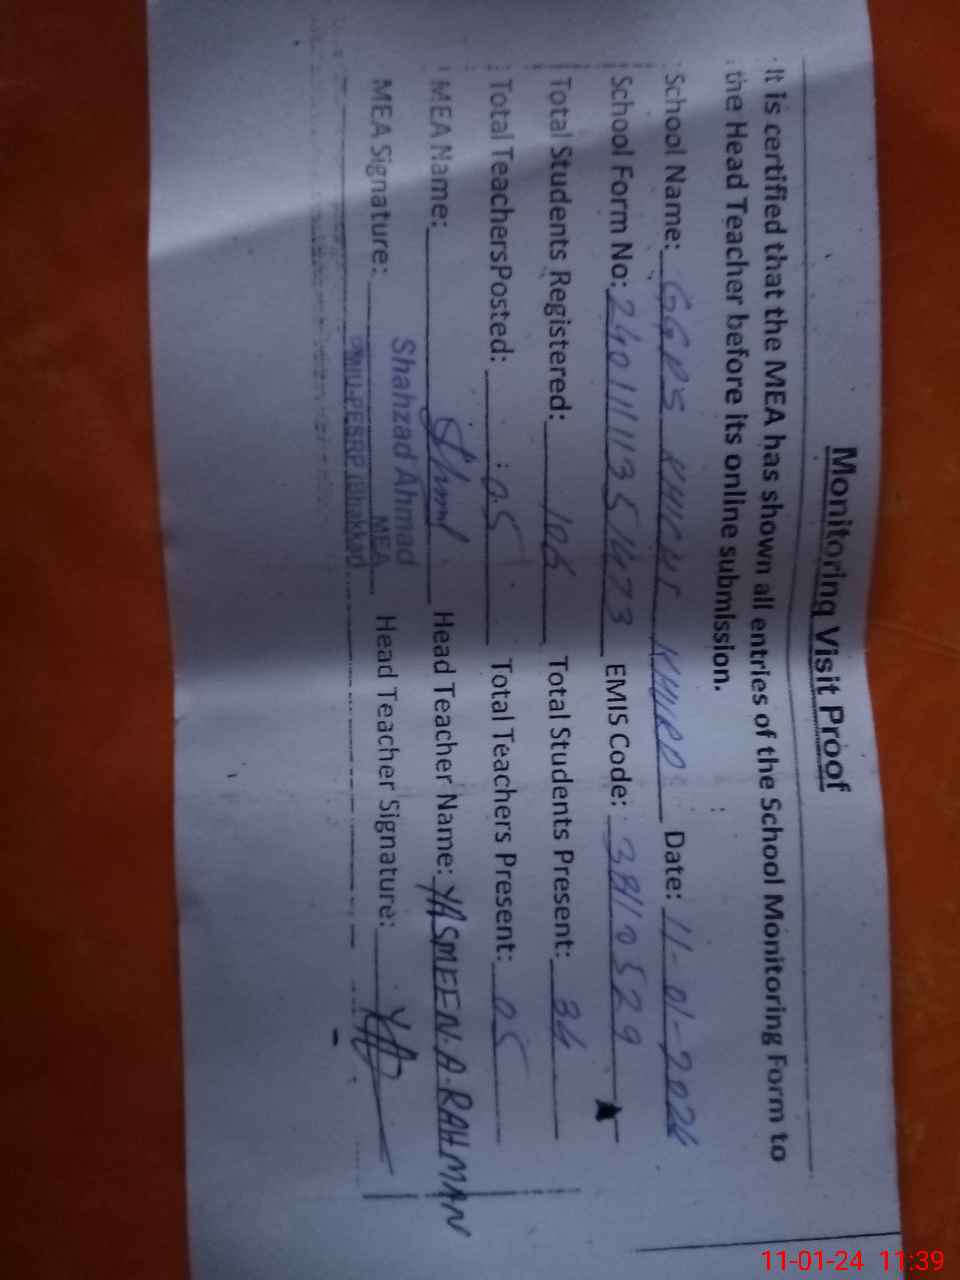 Monitoring Visit Proof
It is certified that the MEA has shown all entries of the School Monitoring Form to
the Head Teacher before its online submission.
School Name: GGPS KHICHI KHURD Date: 11-01-2024
School Form No: 2401111351473 EMIS Code: 38110529
Total Students Registered: 106 Total Students Present: 34
Total TeachersPosted: 05 Total Teachers Present: 05
MEA Name: Head Teacher Name: YASMEEN.A.RAHMAN
MEA Signature: Shahzad Ahmad Head Teacher Signature:
MEA
PMIU-PESRP (Bhakkar)
11-01-24 11:39